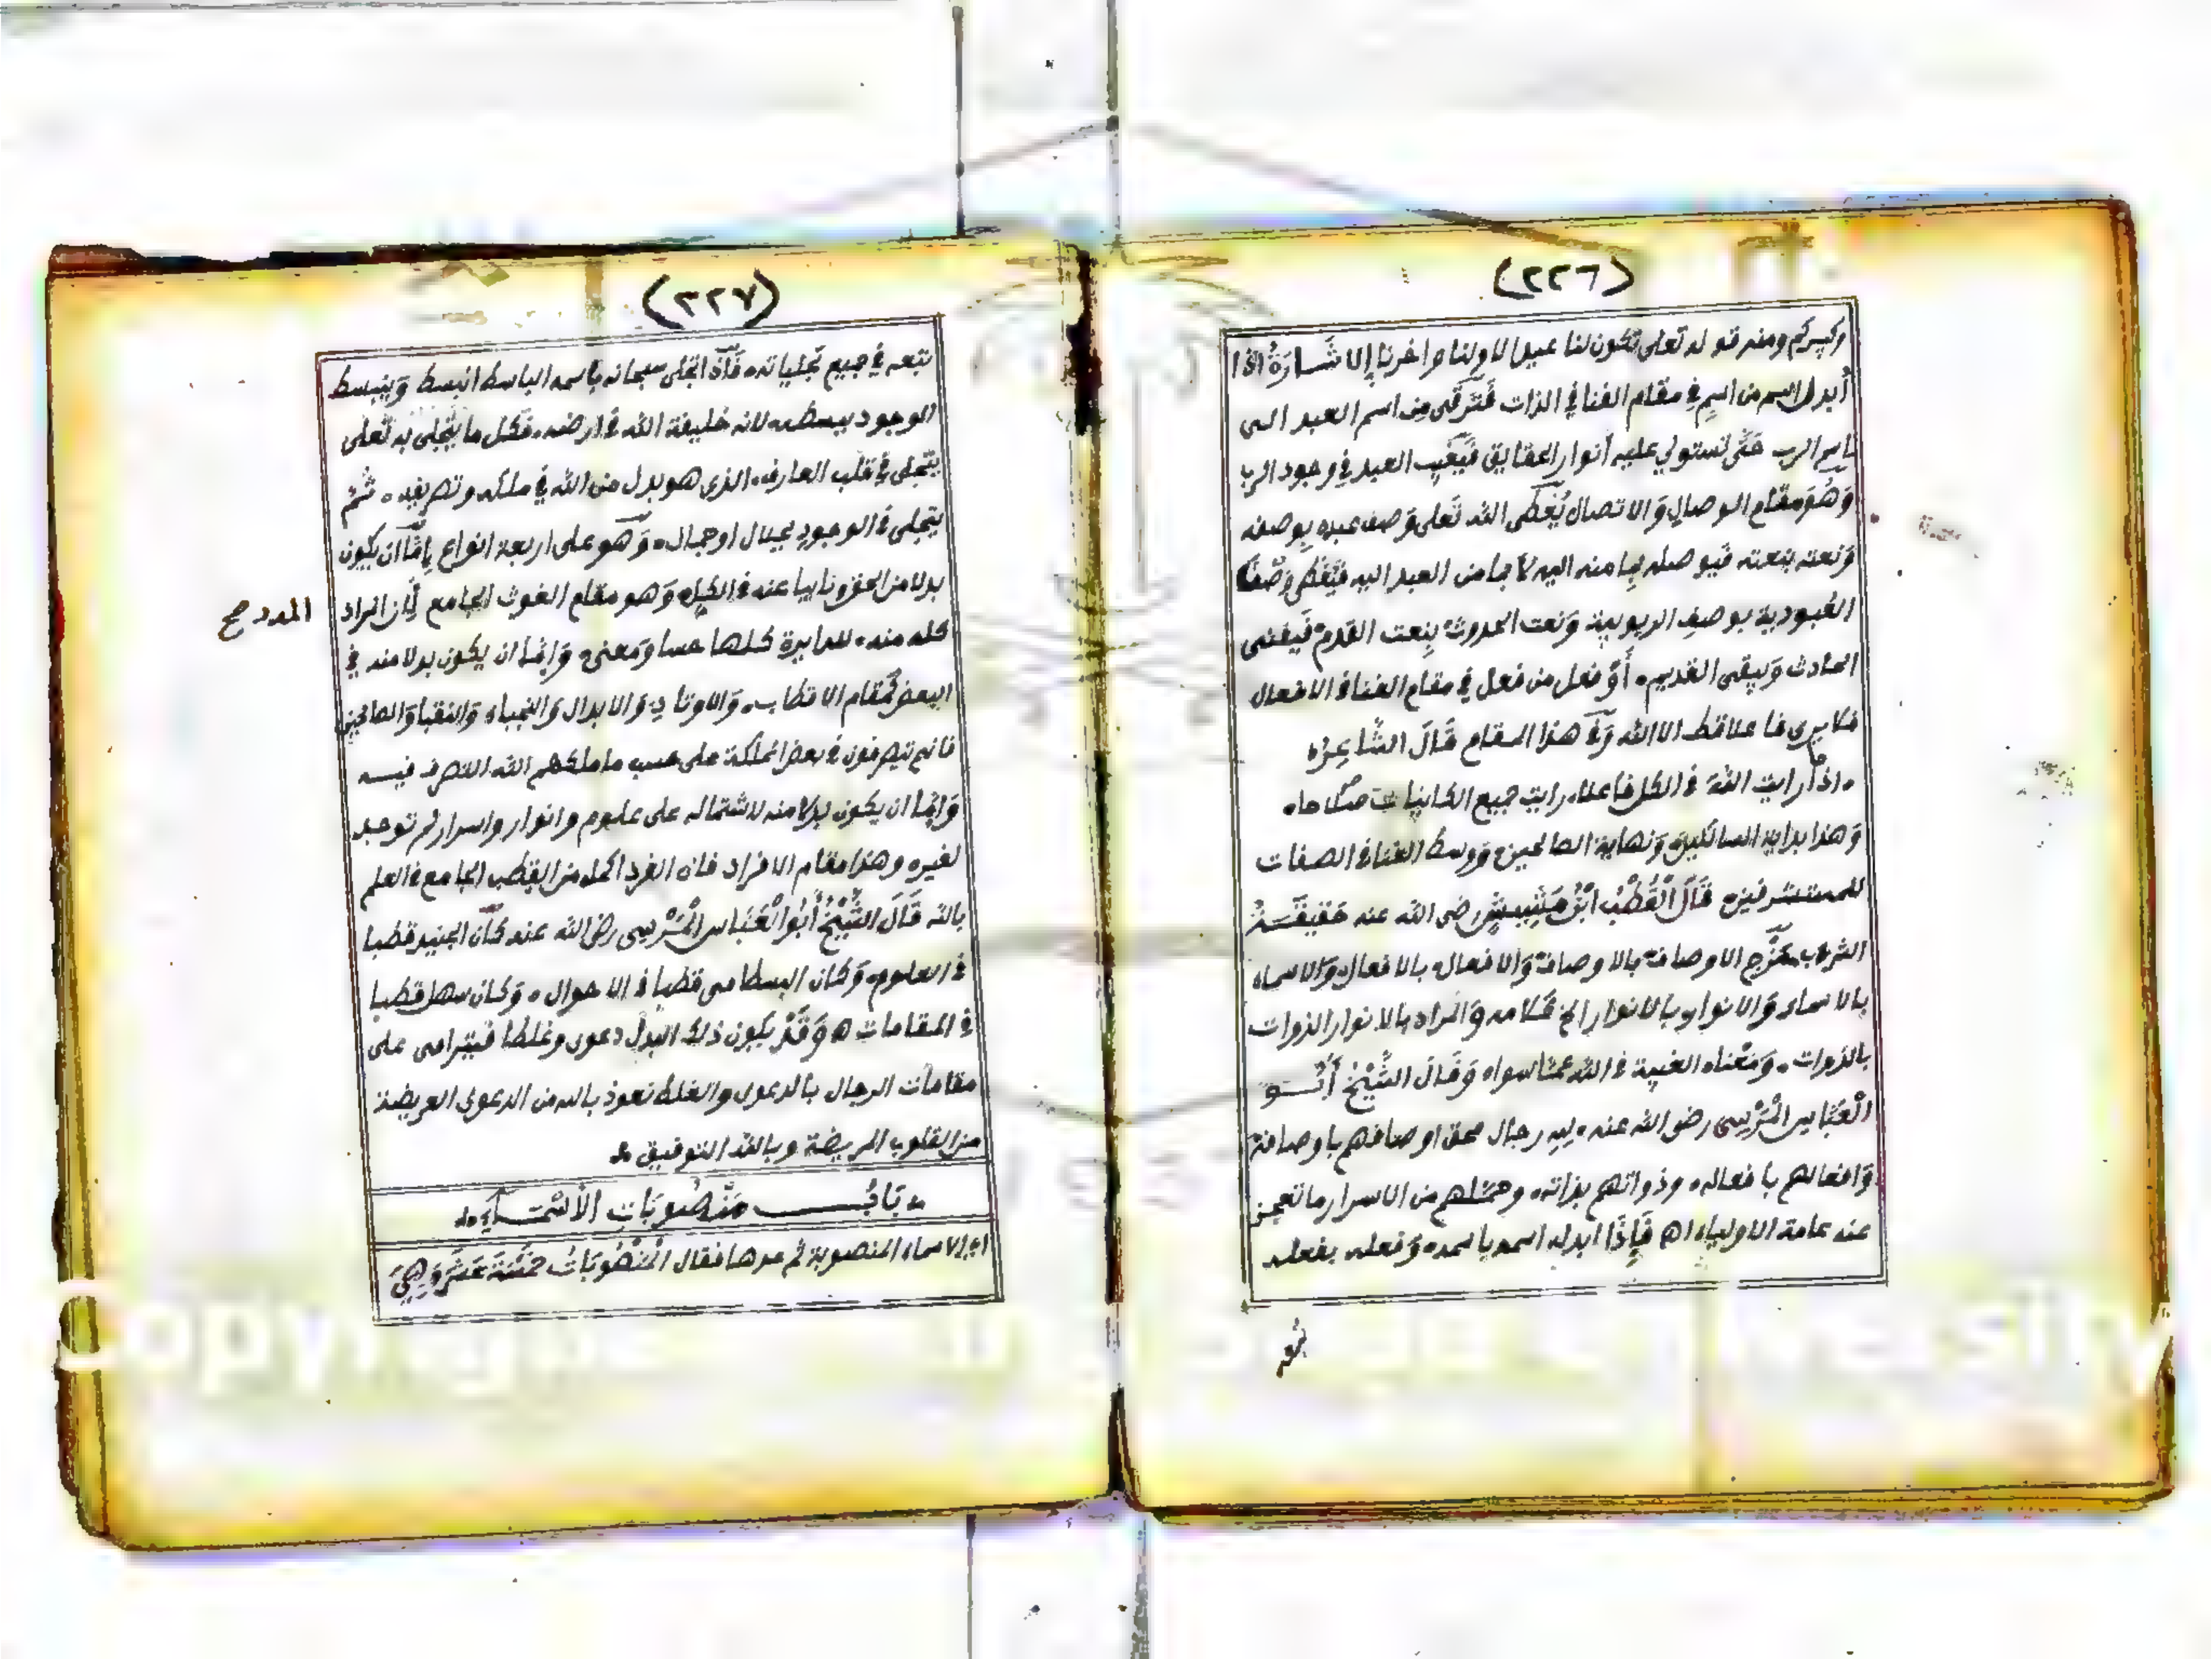 (٢٢٦)
وكبيركم ومنه قوله تعلى تكون لنا عيدا لاولنا واخرنا الاشَارَةُ اذا
أبدل اسم من اسمٍ في مقام الفنا في الذات فَتَرقَّى من اسم العبد الى
اسم الرب حَتَّى تستولي عليه أنوار الحقايق فَيَغيب العبد في وجود الرب
وَهُوَ مقام الوصال وَالاتصال يُغَطى الله تَعلى وَصف عبده بوصفه
وَنعته بنعته فَيوصله بما منه اليه لا بما من العبد اليه فَيُغطى وَصْف
العُبودية بوصفِ الربوبية وَنعت الحدوث بِنعت القدم فَيفنى
الحادث وَيبقى القديم أَوْ فعل من فعل في مقام الفنا في الافعال
فلا يرى فاعلا قط الا الله وَفي هذا المقام قَالَ الشَّاعِر
اذا رايت اللهَ في الكل فاعلا رايت جميع الكاينات ملاحا
وَهذا بداية السائلين وَنهاية الصالحين وَوسط الفنا في الصفات
للمستشرفين قَالَ الْقُطْبُ ابْنُ مَشِيشٍ رضى الله عنه حَقيقَة
الشراب مَزْج الاوصاف بالاوصاف وَالافعال بالافعال وَالاسماء
بالاسماء وَالانوار بالانوار الخ كَلامه وَالمراد بالانوار الذوات
بالذوات وَمَعْناه الغيبة في الله عمَّا سواه وَقَالَ الشَّيْخُ أَبُو
الْعَبَّاسِ الْمُرْسِى رضى الله عنه لله رجال محق اوصافهم باوصافه
وَافعالهم بافعاله وذواتهم بذاته وحملهم من الاسرار ما تعجز
عنه عامة الاولياء اه فَإِذَا ابدل اسمه باسمه وَفعله بفعله
(٢٢٧)
تبعه في جميع تجلياته فَإذا تجلى سبحانه باسمه الباسط انبسط وَينبسط
الوجود ببسطه لانه خليفة الله في ارضه فَكل ما يَتجلى به تَعلى
يتجلى في قلب العارف الذى هو بدل من الله في ملكه وتصريفه ثم
يتجلى في الوجود بجلال او جمال وَهو على اربعة انواع إمَّا ان يكون
بدلا من الحق ونايبا عنه في الكل وَهو مقام الغوث الجامع لان المراد
المدد صح
كله منه للدايرة كلها حسا وَمعنى وَإما ان يكون بدلا منه في
البعض كَمقام الاقطاب وَالاوتاد وَالابدال وَالنجباء وَالنقبا وَالصالحين
فانهم يتصرفون في بعض المملكة على حسب ما ملكهم الله التصرف فيه
وَإما ان يكون بدلا منه لاشتماله على علوم وانوار واسرار لم توجد
لغيره وهذا مقام الافراد فان الفرد اكمل من القطب الجامع في العلم
بالله قَالَ الشَّيْخُ أَبُو الْعَبَّاس الْمُرْسِى رضى الله عنه كَان الجنيد قطبا
في العلوم وَكان البسطامى قطبا في الاحوال وَكان سهل قطبا
في المقامات وَقَدْ يكون ذلك البدل دعوى وغلطا فيترامى على
مقامات الرجال بالدعوى والغلط نعوذ بالله من الدعوى العريضة
من القلوب المريضة وبالله التوفيق
بَابُ مَنْصُوبَاتِ الأَسْمَاءِ
اى الاسماء المنصوبة ثم عدها فقال الْمَنْصُوبَاتُ خَمْسَةَ عَشَرَ وَهِيَ